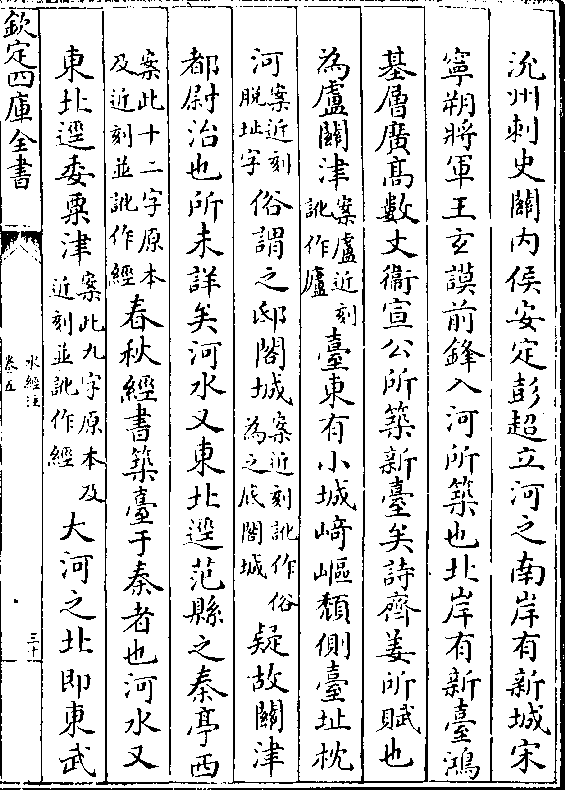 沇州刺史關内侯安定彭超立河之南岸有新城宋
寧朔將軍王玄謨前鋒入河所築也北岸有新臺鴻
基層廣髙數丈衞宣公所築新臺矣詩齊姜所賦也
為盧關津案盧近刻訛作廬臺東有小城崎嶇頽側臺址枕
河案近刻脱址字俗謂之邸閣城案近刻訛作俗為之底閣城疑故關津
都尉治也所未詳矣河水又東北逕范縣之秦亭西
案此十二字原本及近刻並訛作經春秋經書築臺于秦者也河水又
東北逕委粟津案此九字原本及近刻並訛作經大河之北即東武
欽定四庫全書
水經注
卷五
三十